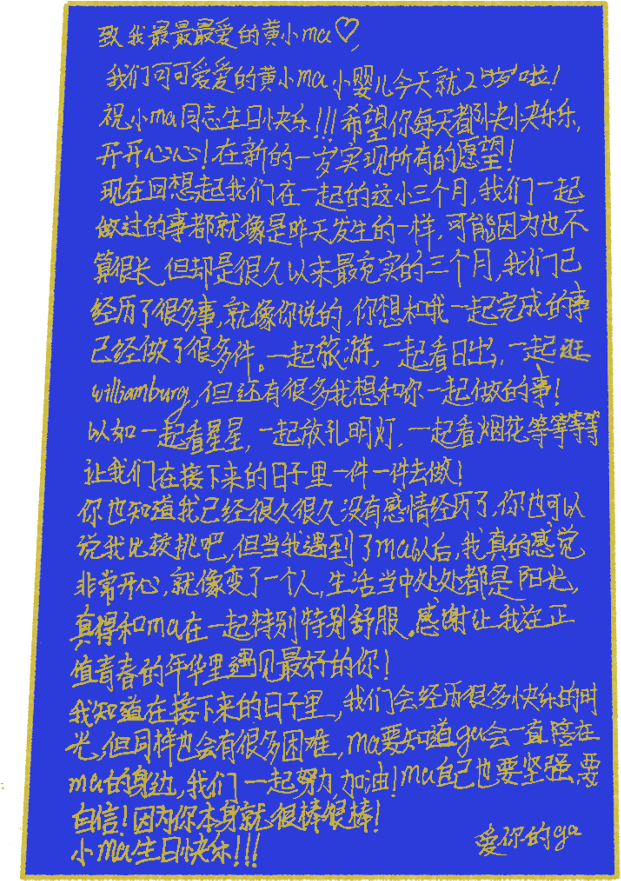 致我最最最爱的黄小ma♡,
我们可可爱爱的黄小ma小婴儿今天就25岁啦!
祝小ma同志生日快乐!!!希望你每天都快快乐乐,
开开心心!在新的一岁实现所有的愿望!
现在回想起我们在一起的这小三个月,我们一起
做过的事都就像是昨天发生的一样,可能因为也不
算很长,但却是很久以来最充实的三个月,我们已
经历了很多事,就像你说的,你想和我一起完成的事
已经做了很多件。一起旅游,一起看日出,一起逛
williamburg,但还有很多我想和你一起做的事!
以如一起看星星,一起放孔明灯,一起看烟花等等等等
让我们在接下来的日子里一件一件去做!
你也知道我已经很久很久没有感情经历了,你也可以
说我比较挑吧,但当我遇到了ma以后,我真的感觉
非常开心,就像变了一个人,生活当中处处都是阳光,
真得和ma在一起特别特别舒服。感谢让我在正
值青春的年华里遇见最好的你!
我知道在接下来的日子里,我们会经历很多快乐的时
光,但同样也会有很多困难,ma要知道ga会一直陪在
ma的身边,我们一起努力,加油!ma自己也要坚强,要
自信!因为你本身就很棒很棒!
小ma生日快乐!!!
爱你的ga